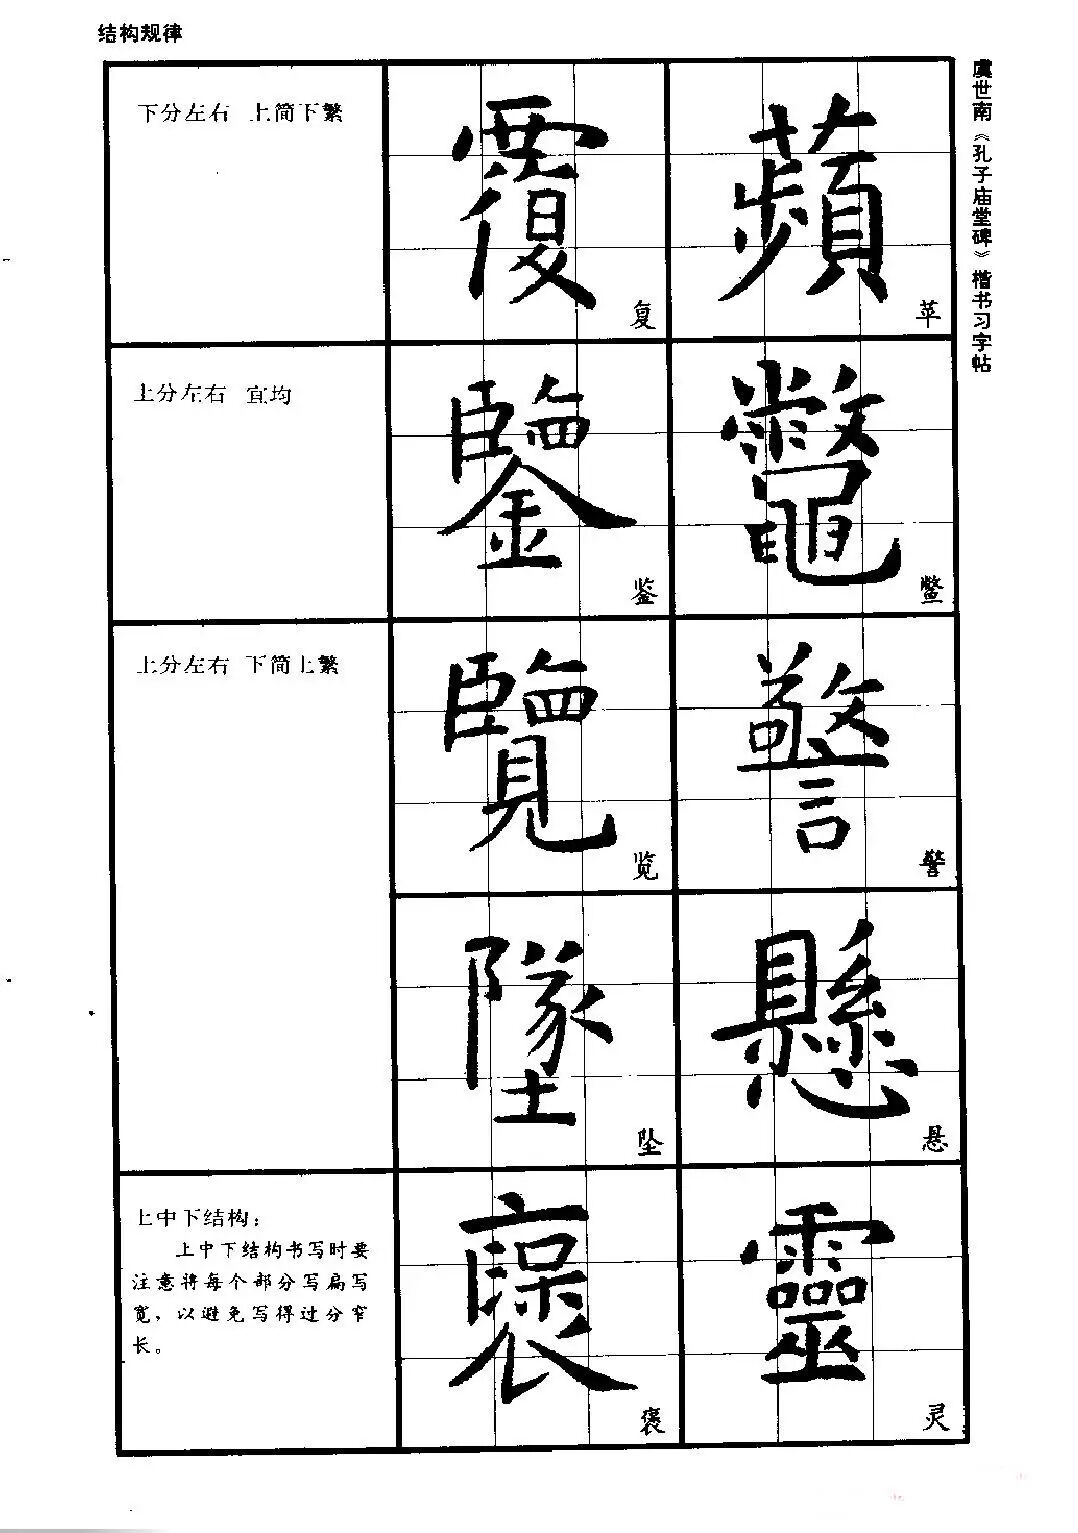 结构规律
虞世南《孔子庙堂碑》楷书习字帖
下分左右 上简下繁
覆
复
蘋
苹
上分左右 宜均
鑒
鉴
鼈
鳖
上分左右 下简上繁
覽
览
警
警
墜
坠
懸
悬
上中下结构：
上中下结构书写时要
注意将每个部分写扁写
宽，以避免写得过分窄
长。
褒
靈
灵